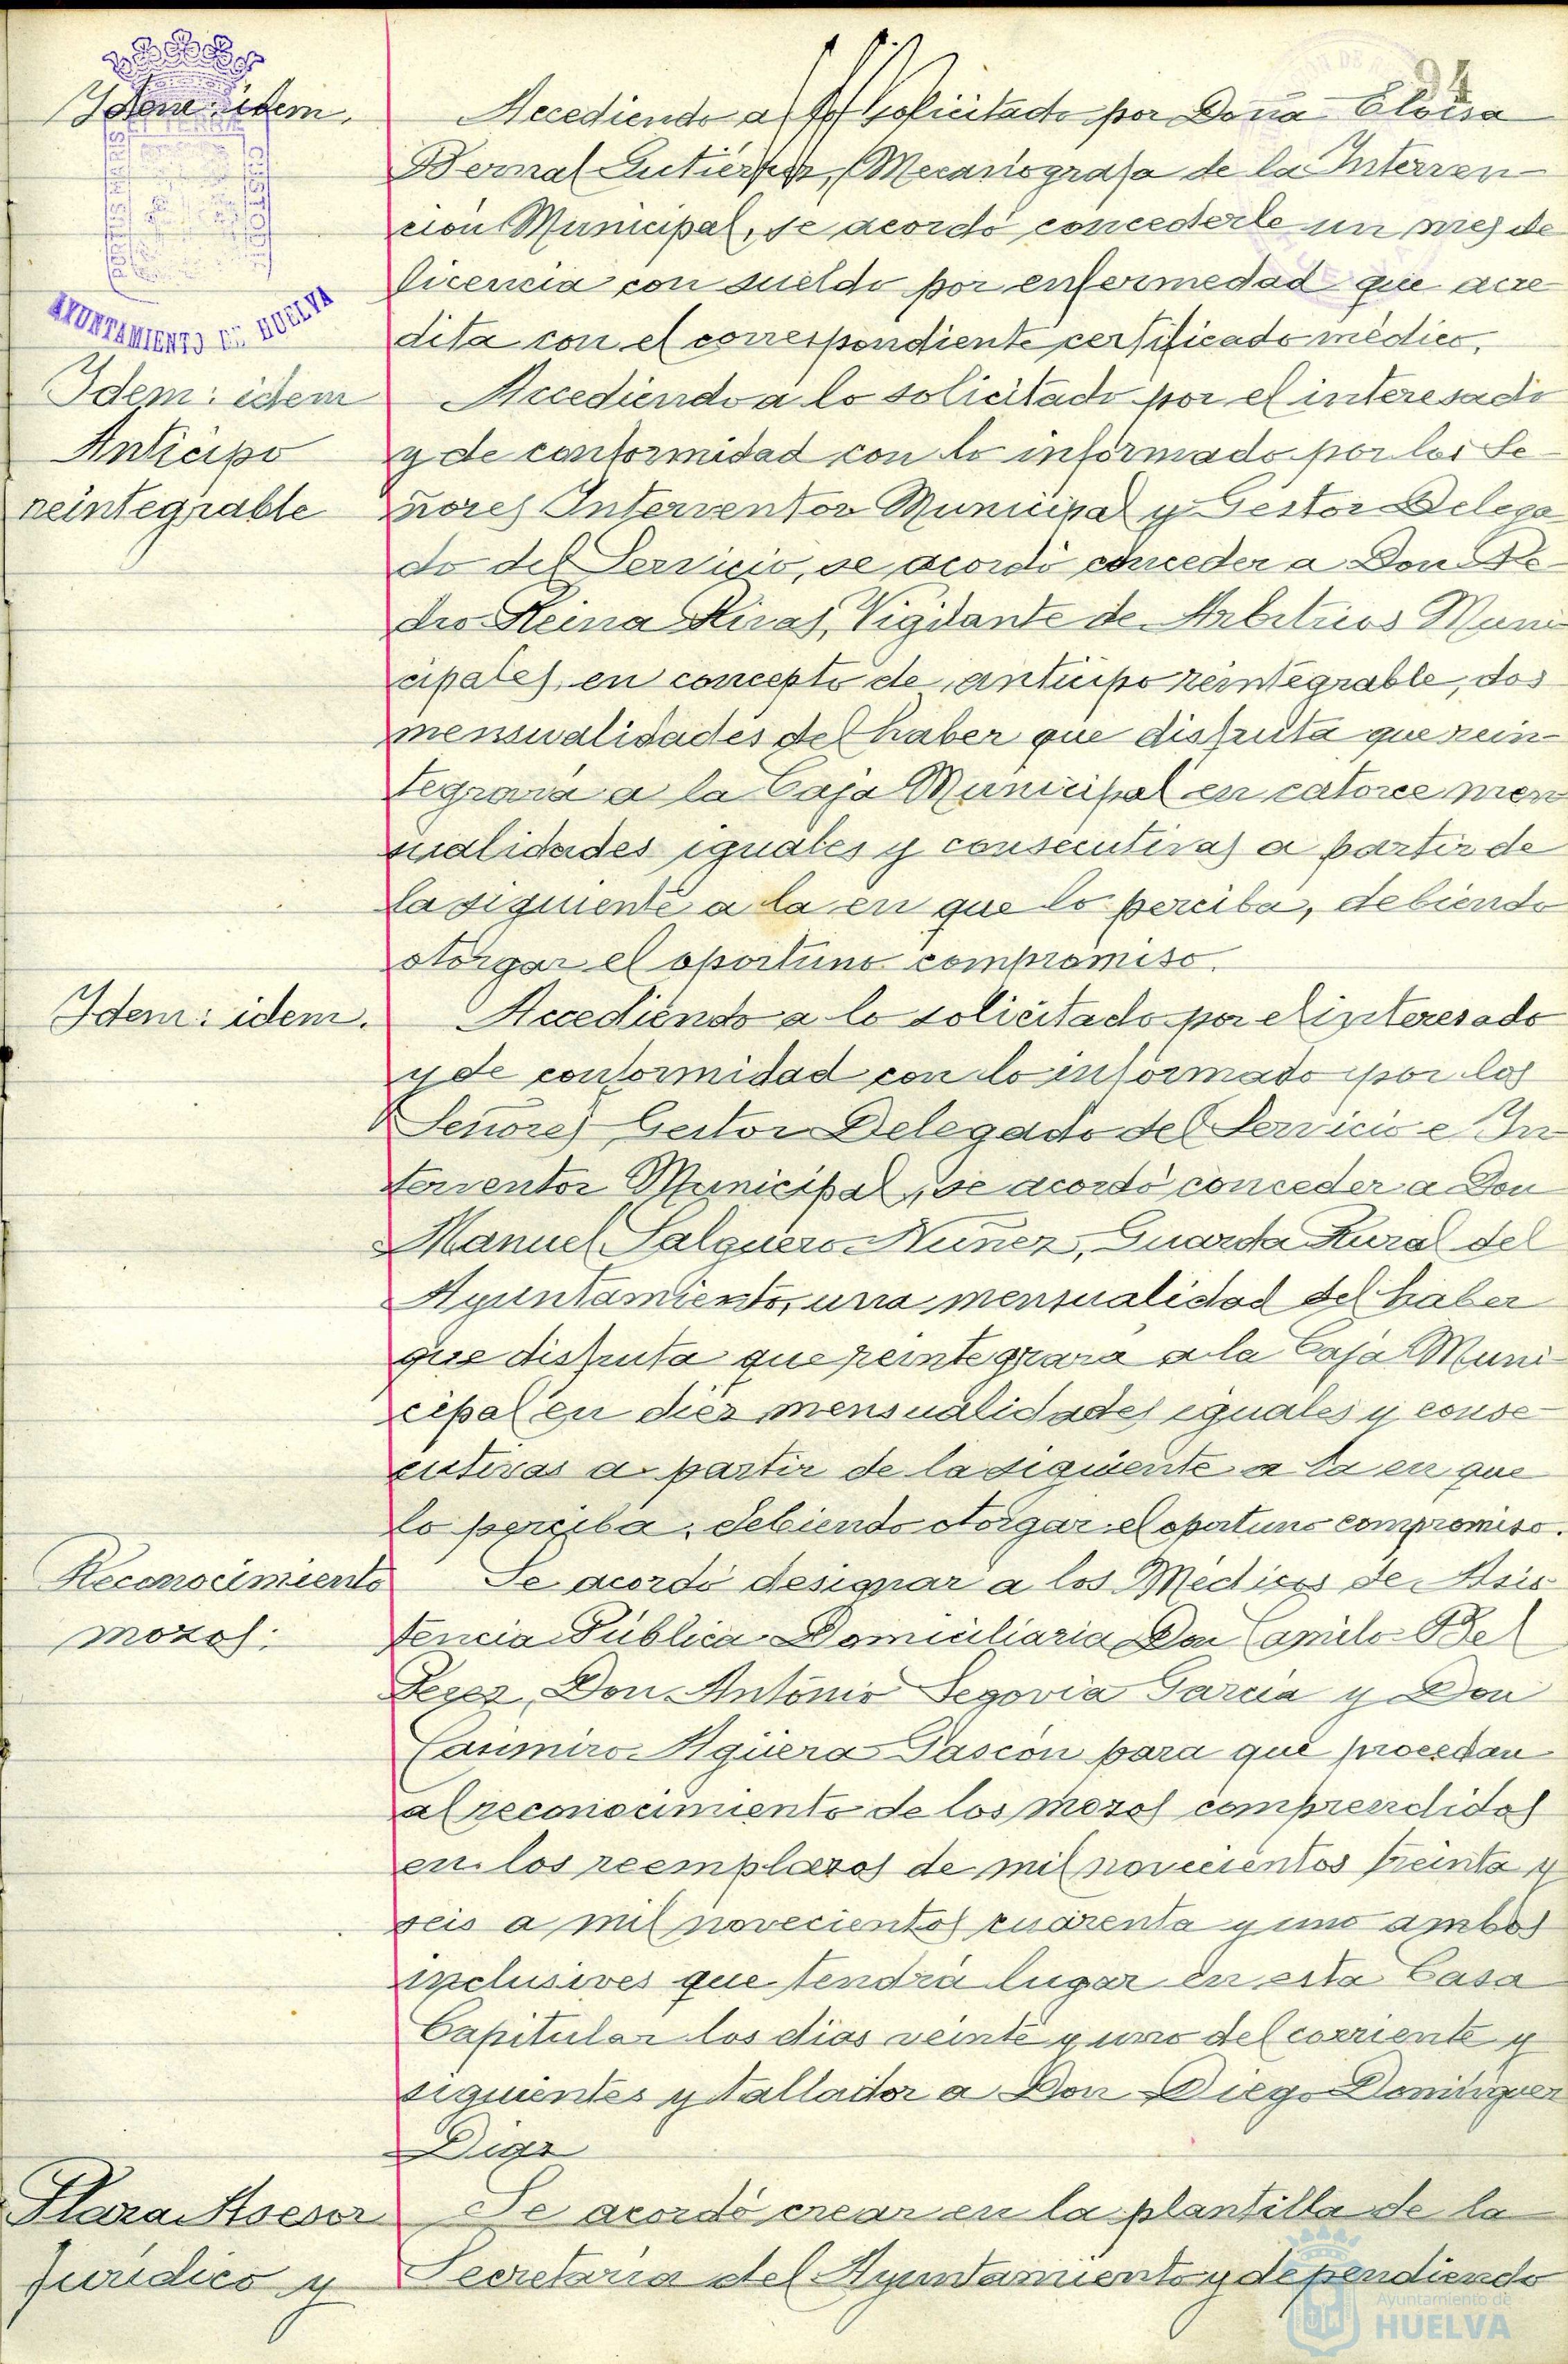 94
Idem: idem.
Accediendo a lo solicitado por Doña Eloisa
Bernal Gutierrez, Mecanógrafa de la Interven-
ción Municipal, se acordó concederle un mes de
licencia con sueldo por enfermedad que acre
dita con el correspondiente certificado médico.
AYUNTAMIENTO DE HUELVA
Idem: idem
Anticipo
reintegrable
Accediendo a lo solicitado por el interesado
y de conformidad con lo informado por los Se-
ñores Interventor Municipal y Gestor Delega
do del Servicio, se acordó conceder a Don Pe-
dro Reina Rivas, Vigilante de Arbitrios Muni
cipales, en concepto de anticipo reintegrable, dos
mensualidades del haber que disfruta que rein-
tegrará a la Caja Municipal en catorce men
sualidades iguales y consecutivas a partir de
la siguiente a la en que lo perciba, debiendo
otorgar el oportuno compromiso.
Idem: idem.
Accediendo a lo solicitado por el interesado
y de conformidad con lo informado por los
Señores Gestor Delegado del Servicio e In
terventor Municipal, se acordó conceder a Don
Manuel Salguero Nuñez, Guarda Rural del
Ayuntamiento, una mensualidad del haber
que disfruta que reintegrará a la Caja Muni
cipal en diez mensualidades iguales y conse-
cutivas a partir de la siguiente a la en que
lo perciba, debiendo otorgar el oportuno compromiso.
Reconocimiento
mozos:
Se acordó designar a los Médicos de Asis
tencia Pública Domiciliaria Don Camilo Bel
Perez, Don Antonio Segovia Garcia y Don
Casimiro Agüera Pascón para que procedan
al reconocimiento de los mozos comprendidos
en los reemplazos de mil novecientos treinta y
seis a mil novecientos cuarenta y uno ambos
inclusives que tendrá lugar en esta Casa
Capitular los dias veinte y uno del corriente y
siguientes y tallador a Don Diego Dominguez
Diaz
Plaza Asesor
Jurídico y
Se acordó crear en la plantilla de la
Secretaria del Ayuntamiento y dependiendo
Ayuntamiento de
HUELVA